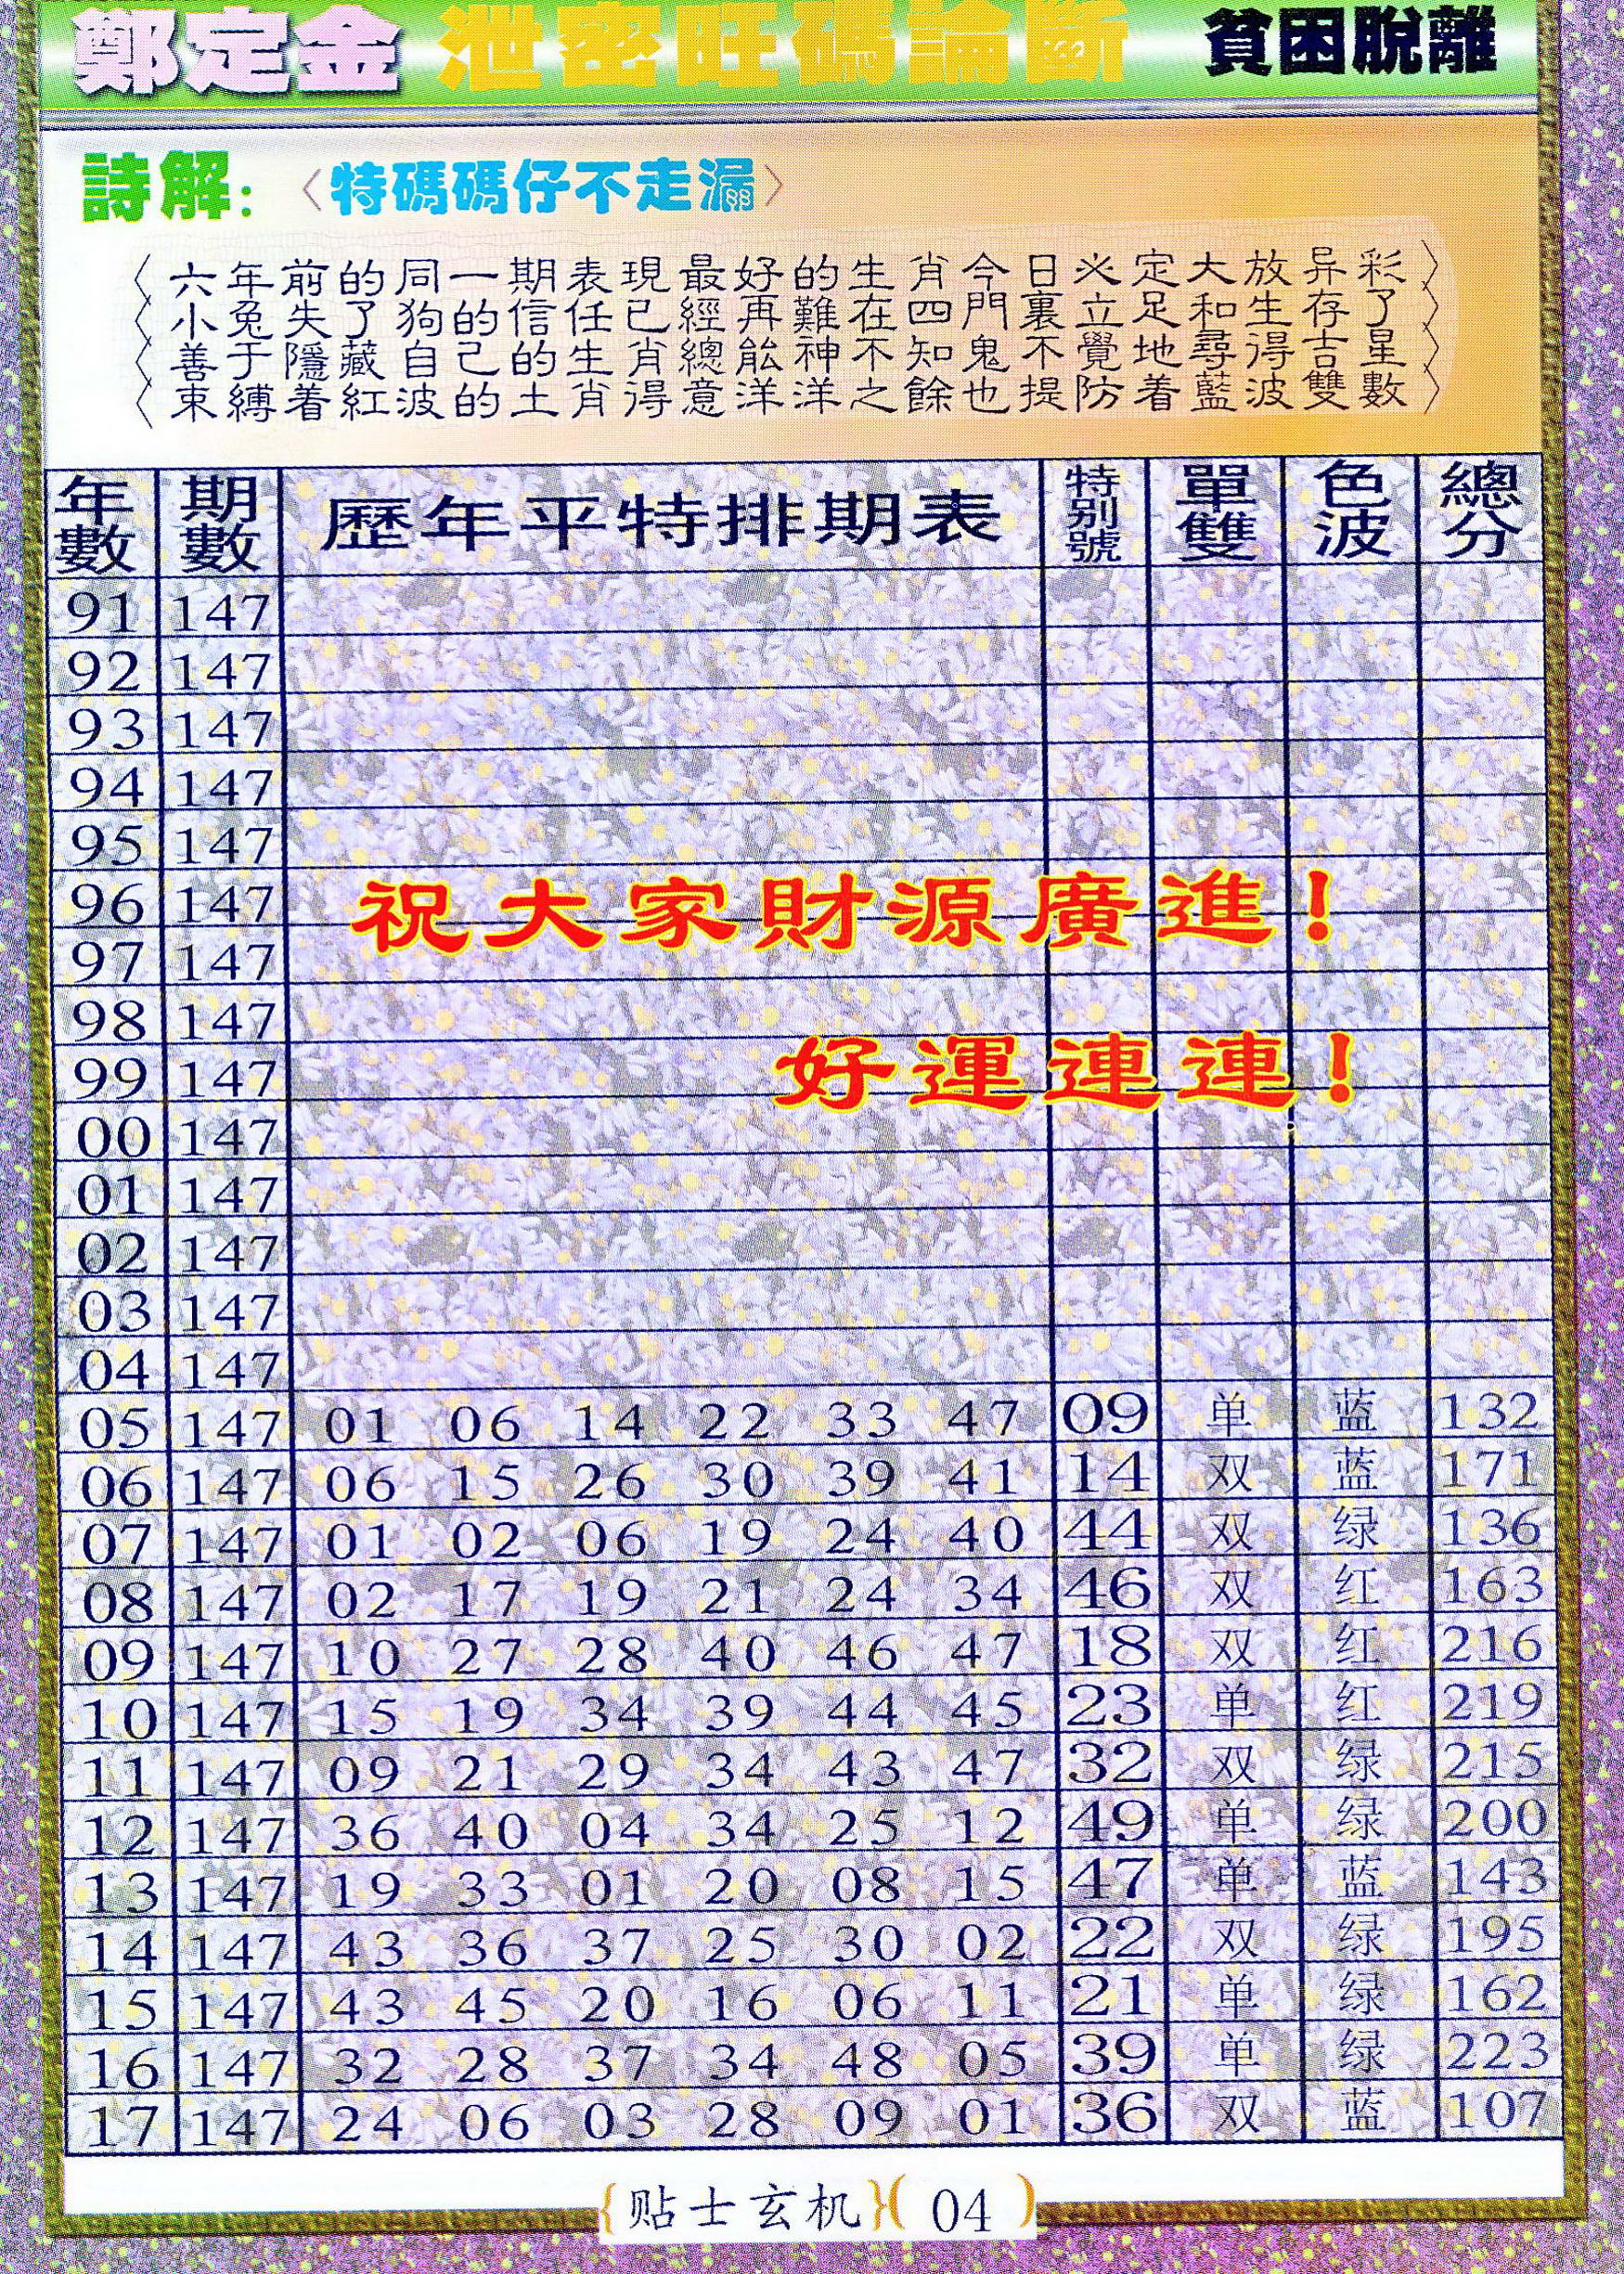 鄭定金 泄密旺碼論斷 貧困脫離
詩解:〈特碼碼仔不走漏〉
〈六年前的同一期表現最好的生肖今日必定大放异彩〉
〈小兔失了狗的信任已經再難在四門裏立足和生存了〉
〈善于隱藏自己的生肖總能神不知鬼不覺地尋得吉星〉
〈束縛着紅波的土肖得意洋洋之餘也提防着藍波雙數〉
年數 期數 歷年平特排期表 特别號 單雙 色波 總分
91 147
92 147
93 147
94 147
95 147
96 147
祝大家財源廣進!
97 147
98 147
99 147
好運連連!
00 147
01 147
02 147
03 147
04 147
05 147 01 06 14 22 33 47 09 单 蓝 132
06 147 06 15 26 30 39 41 14 双 蓝 171
07 147 01 02 06 19 24 40 44 双 绿 136
08 147 02 17 19 21 24 34 46 双 红 163
09 147 10 27 28 40 46 47 18 双 红 216
10 147 15 19 34 39 44 45 23 单 红 219
11 147 09 21 29 34 43 47 32 双 绿 215
12 147 36 40 04 34 25 12 49 单 绿 200
13 147 19 33 01 20 08 15 47 单 蓝 143
14 147 43 36 37 25 30 02 22 双 绿 195
15 147 43 45 20 16 06 11 21 单 绿 162
16 147 32 28 37 34 48 05 39 单 绿 223
17 147 24 06 03 28 09 01 36 双 蓝 107
{贴士玄机}(04)